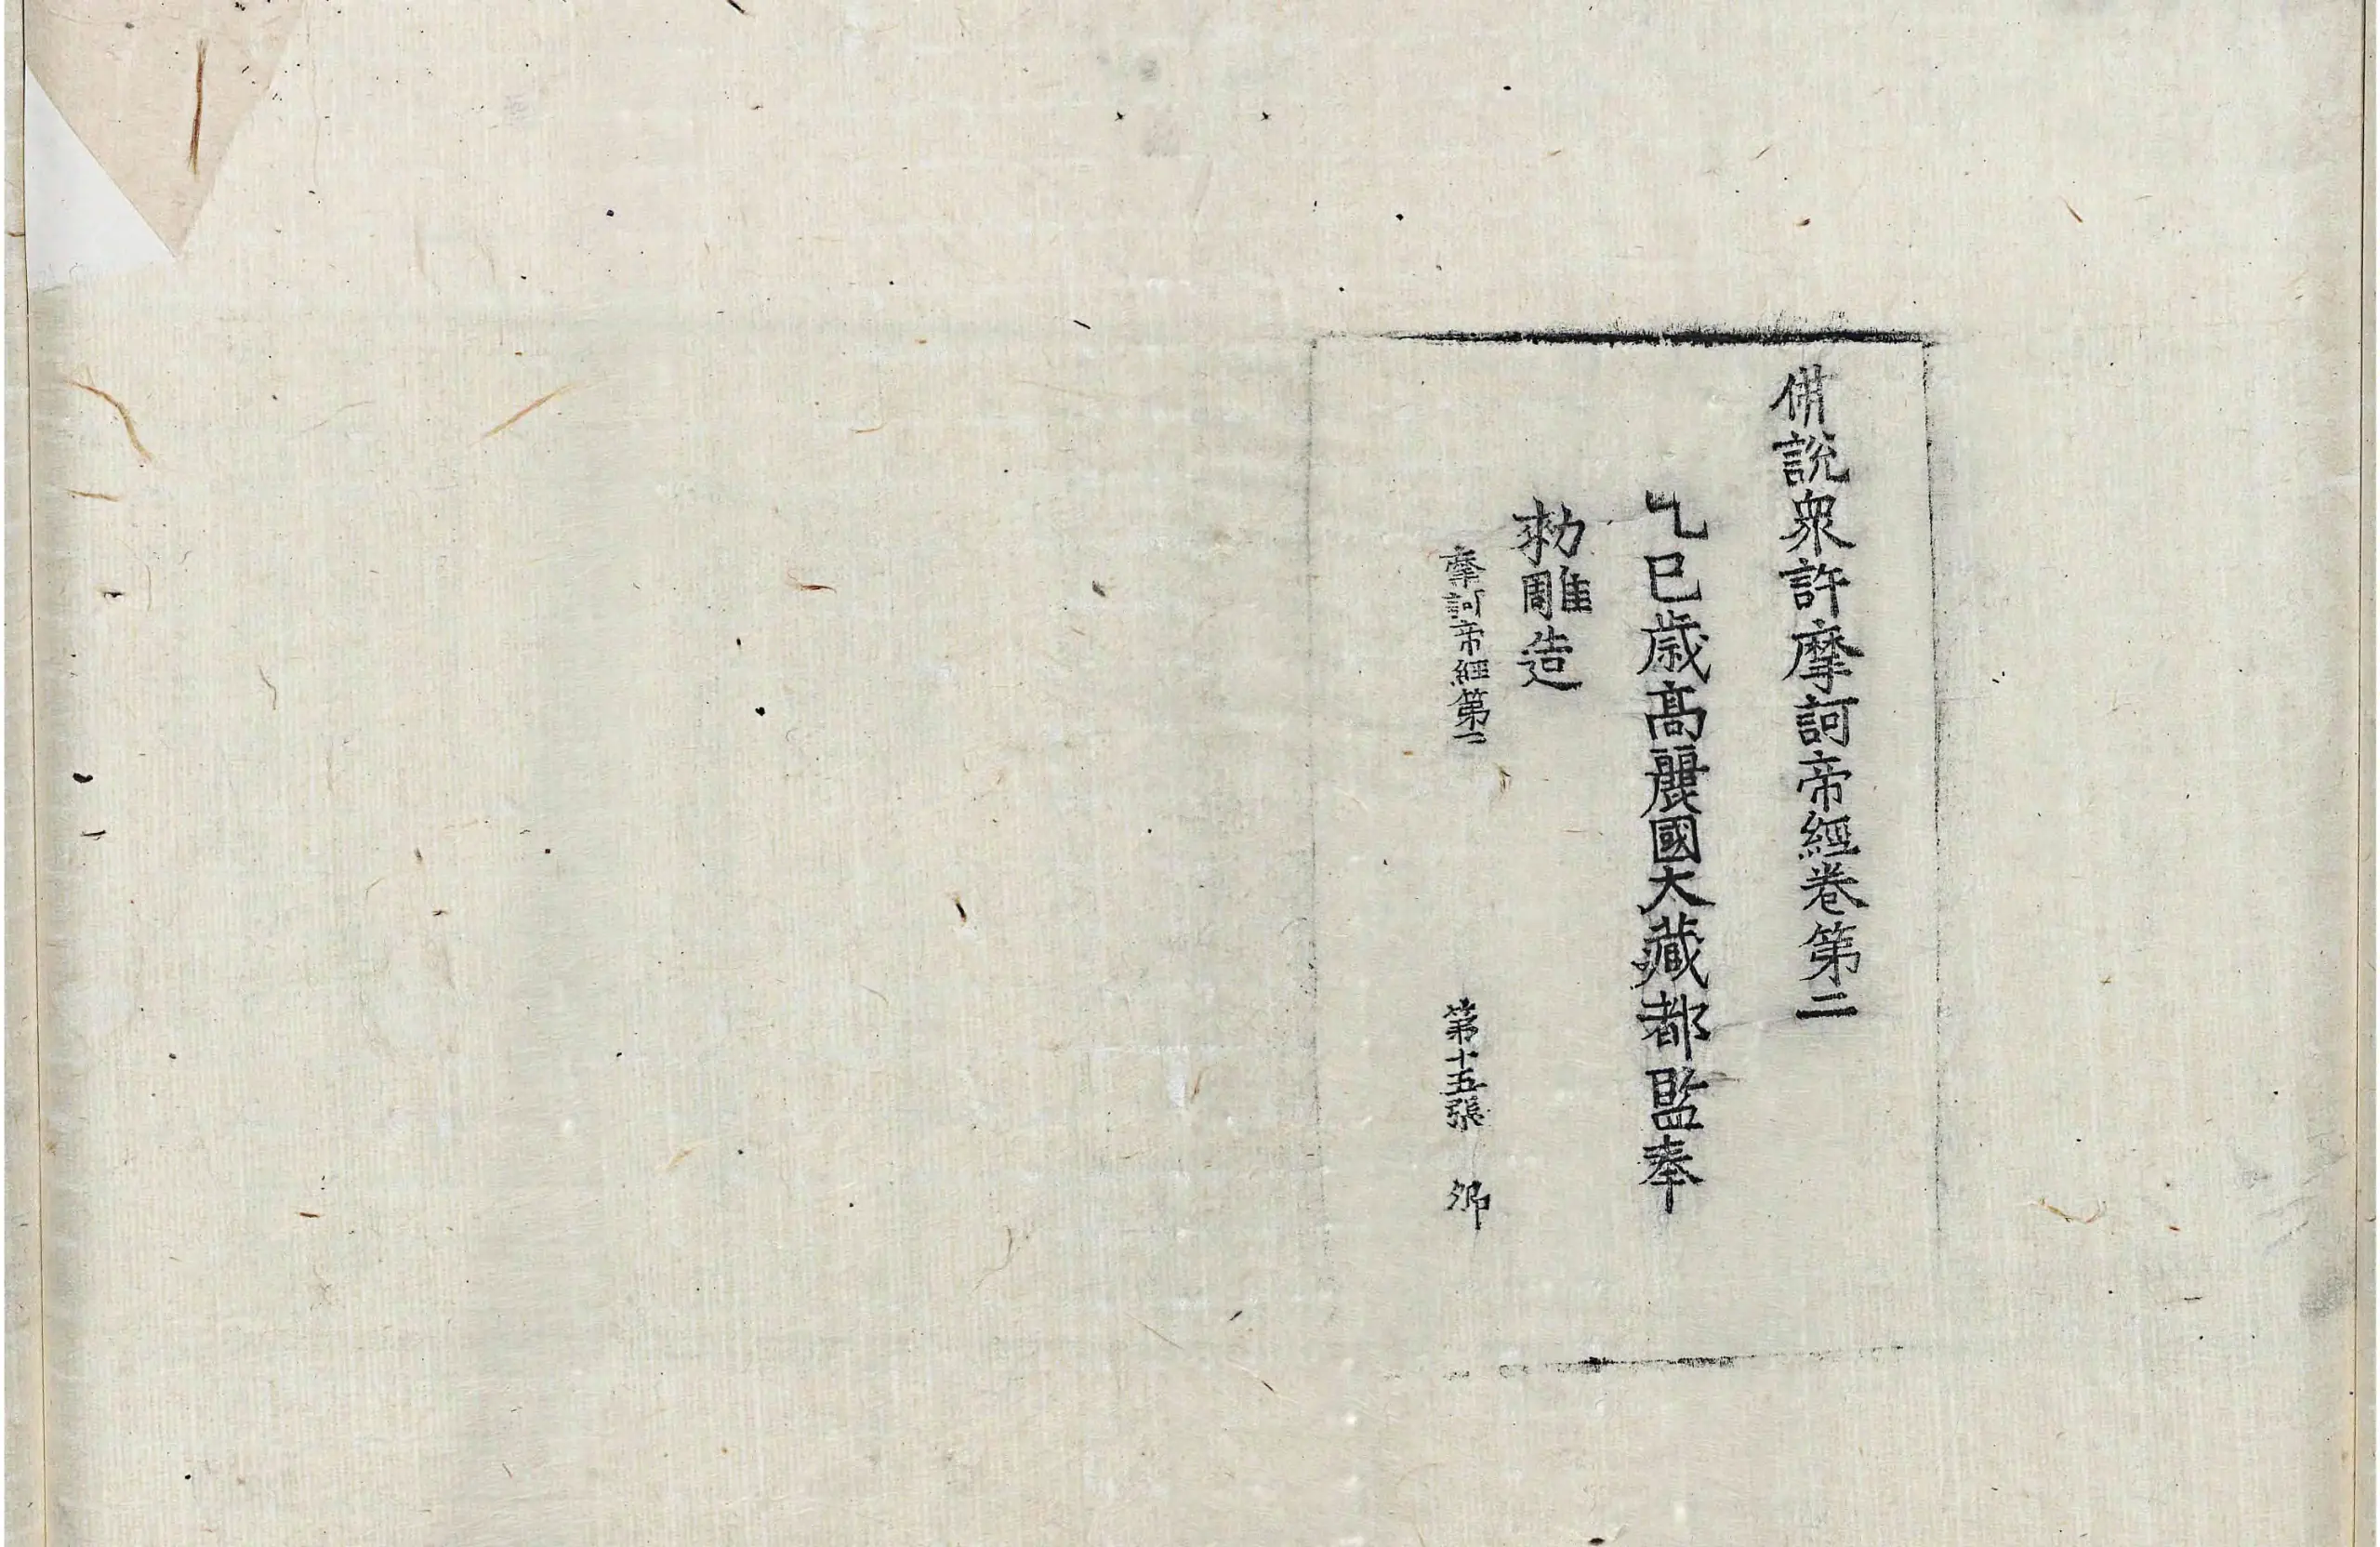 佛說衆許摩訶帝經卷第二
乙巳歲高麗國大藏都監奉
勅雕造
摩訶帝經第二 第十五張